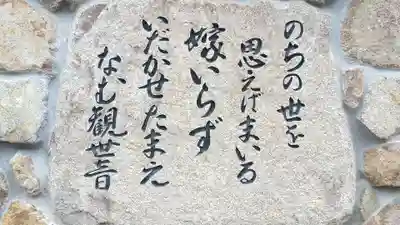 のちの世を
思えばまいる
嫁いらず
いだかせたまえ
なむ觀世音